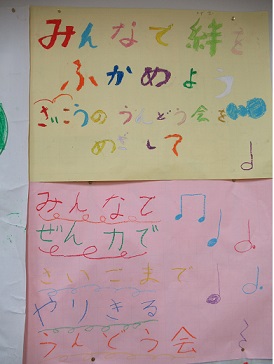 みんなで絆を
ふかめよう
さいこうのうんどう会を
めざして
みんなで
ぜん力で
さいごまで
やりきる
うんどう会